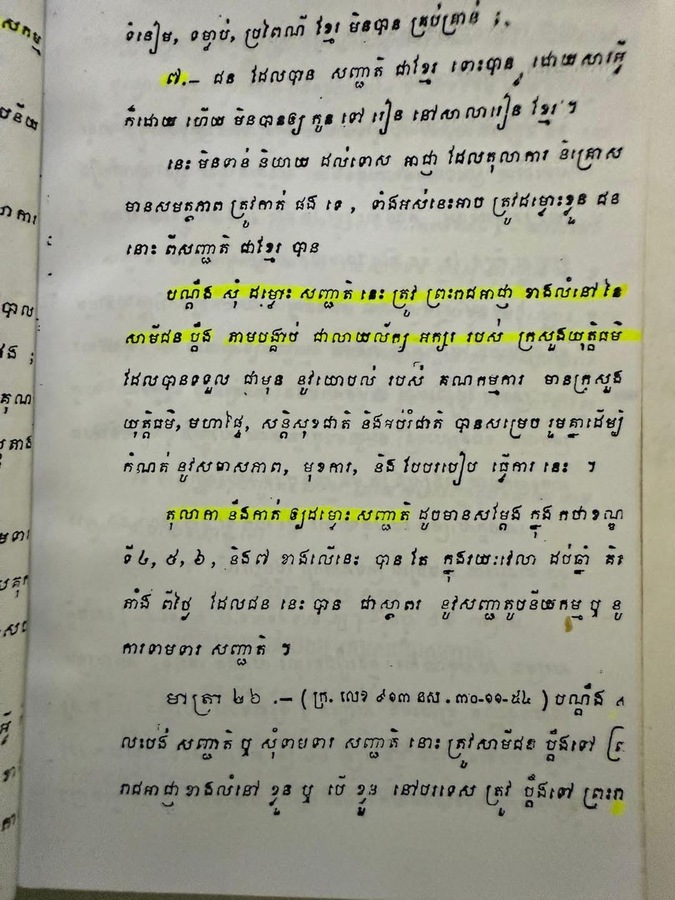 ទំនៀម, ទម្លាប់, ប្រពៃណី ខ្មែរ មិនបាន គ្រប់គ្រាន់ ;
៧.– ជន ដែលបាន សញ្ជាតិ ជាខ្មែរ ទោះបាន ដោយសារអ្វី
ក៏ដោយ ហើយ មិនបានឲ្យ កូន ទៅ រៀន នៅសាលារៀន ខ្មែរ ។
នេះ មិនទាន់ និយាយ ដល់ទោស អាជ្ញា ដែលតុលាការ និគ្រោស
មានសមត្ថភាព ត្រូវកាត់ ផង ទេ , ទាំងអស់នេះអាច ត្រូវដម្មោះខ្លួន ជន
នោះ ពីសញ្ជាតិ ជាខ្មែរ បាន
បណ្ដឹង សុំ ដម្មោះ សញ្ជាតិ នេះ ត្រូវ ព្រះរាជអាជ្ញា ខាងលំនៅ នៃ
សាមីជន ប្ដឹង តាមបង្គាប់ ជាលាយល័ក្ខ អក្សរ របស់ ក្រសួងយុត្តិធម៌
ដែលបានទទួល ជាមុន នូវយោបល់ របស់ គណកម្មការ មានក្រសួង
យុត្តិធម៌, មហាផ្ទៃ, សន្តិសុខជាតិ និងអប់រំជាតិ បានសម្រេប រួមគ្នាដើម្បី
កំណត់ នូវសមាសភាព, មុខការ, និង បែបរបៀប ធ្វើការ នេះ ។
តុលាកា នឹងកាត់ ឲ្យដម្មោះ សញ្ជាតិ ដូចមានសម្ដែង ក្នុង កថាខណ្ឌ
ទី៤, ៥, ៦, និង៧ ខាងលើនេះ បាន តែ ក្នុងរយៈវេលា ដប់ឆ្នាំ គិត
តាំង ពីថ្ងៃ ដែលជន នេះ បាន ជាស្ថាពរ នូវសញ្ជាតូបនីយកម្ម ឬ នូ
ការទាមទារ សញ្ជាតិ ។
មាត្រា ២៦ .– ( ក្រ. លេខ ៩១៣ នស . ៣០-១១-៥៤ ) បណ្ដឹង
លះបង់ សញ្ជាតិ ឬ សុំទាមទារ សញ្ជាតិ នោះ ត្រូវសាមីជន ប្ដឹងទៅ
រាជអាជ្ញា ខាងលំនៅ ខ្លួន ឬ បើ ខ្លួន នៅបរទេស ត្រូវ ប្ដឹងទៅ ព្រះរា